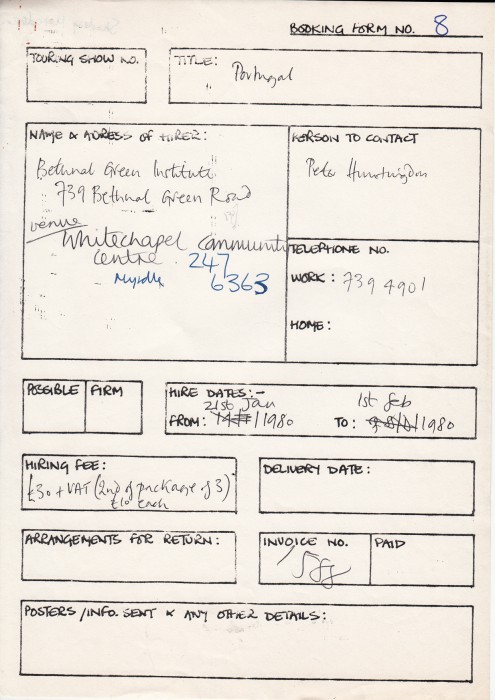 BOOKING FORM NO. 8
TOURING SHOW NO.
TITLE:
Portugal
NAME & ADRESS OF HIRER:
Bethnal Green Institute
739 Bethnal Green Road
venue
Whitechapel Community
Centre. 247
6363
PERSON TO CONTACT
Peter
TELEPHONE NO.
WORK: 739 4901
HOME:
POSSIBLE
FIRM
HIRE DATES:-
21st Jan
FROM: /1980
1st Feb
TO: /1980
HIRING FEE:
£30 + VAT (2nd of package of 3)
£10 each
DELIVERY DATE:
ARRANGEMENTS FOR RETURN:
INVOICE NO.
PAID
POSTERS/INFO. SENT & ANY OTHER DETAILS: